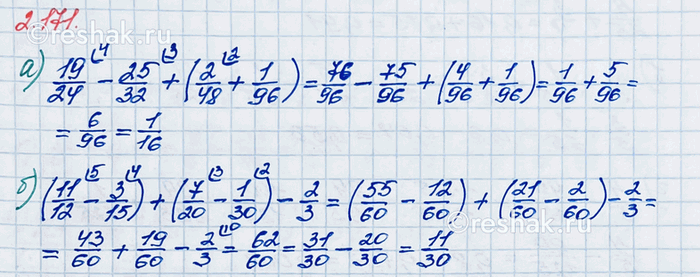 2.171.
а) 19/24 ⁽⁴ − 25/32 ⁽³ + (2/48 ⁽² + 1/96) = 76/96 − 75/96 + (4/96 + 1/96) = 1/96 + 5/96 =
= 6/96 = 1/16
б) (11/12 ⁽⁵ − 3/15 ⁽⁴) + (7/20 ⁽³ − 1/30 ⁽²) − 2/3 = (55/60 − 12/60) + (21/60 − 2/60) − 2/3 =
= 43/60 + 19/60 − 2/3 ⁽¹⁰ = 62/60 = 31/30 − 20/30 = 11/30
reshak.ru